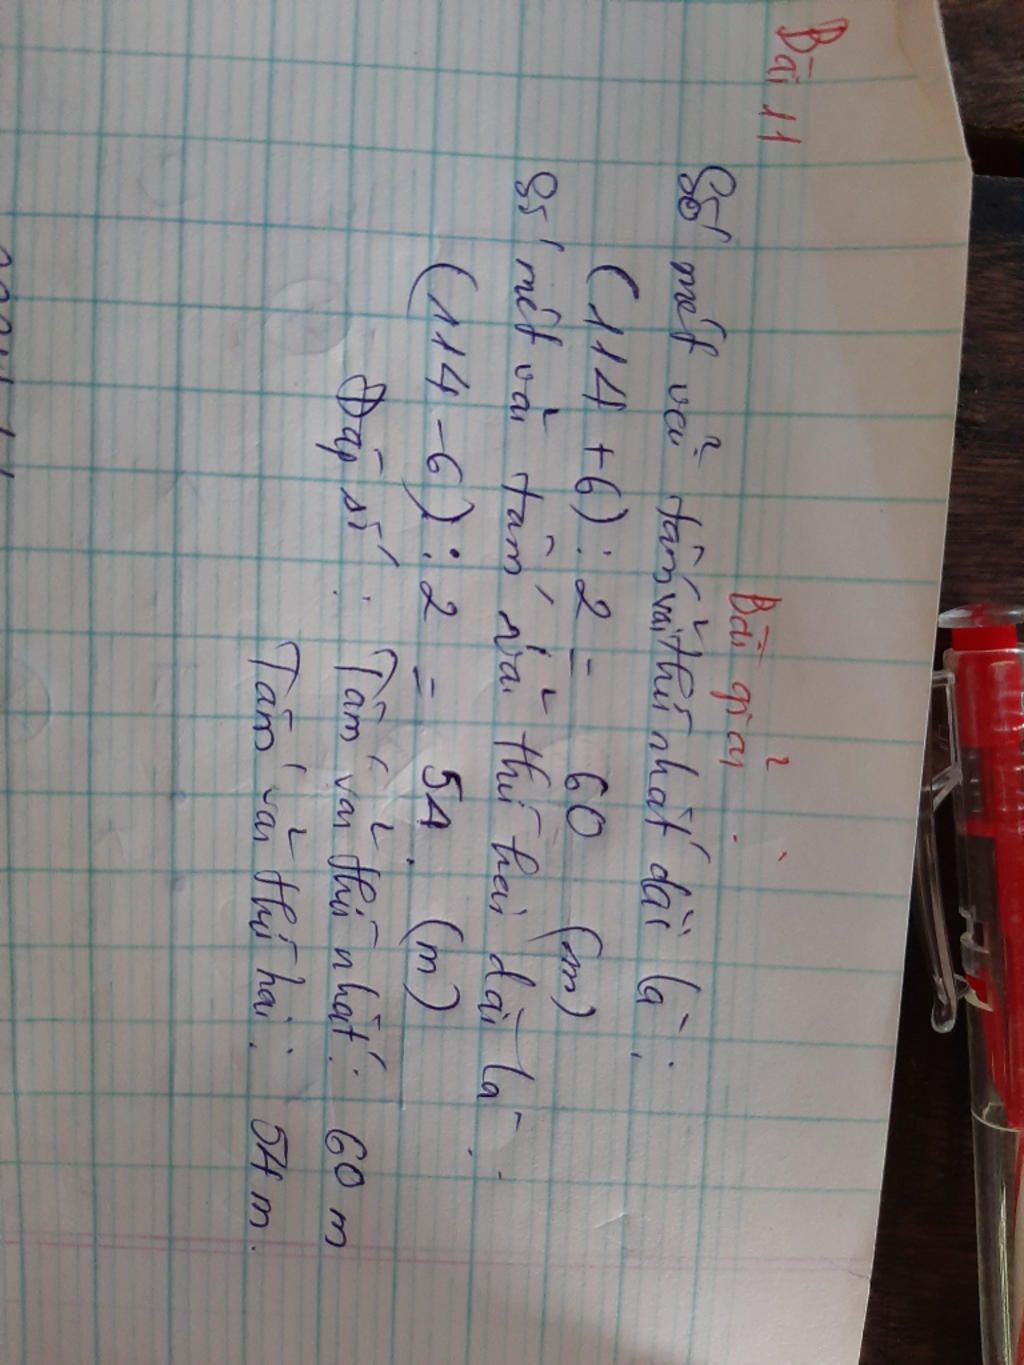 Bài 11
Bài giải :
Số mét vải tấm vải thứ nhất dài là :
(114 + 6) : 2 = 60 (m)
Số mét vải tấm vải thứ hai dài là :
(114 - 6) : 2 = 54 (m)
Đáp số : Tấm vải thứ nhất : 60 m
Tấm vải thứ hai : 54 m.